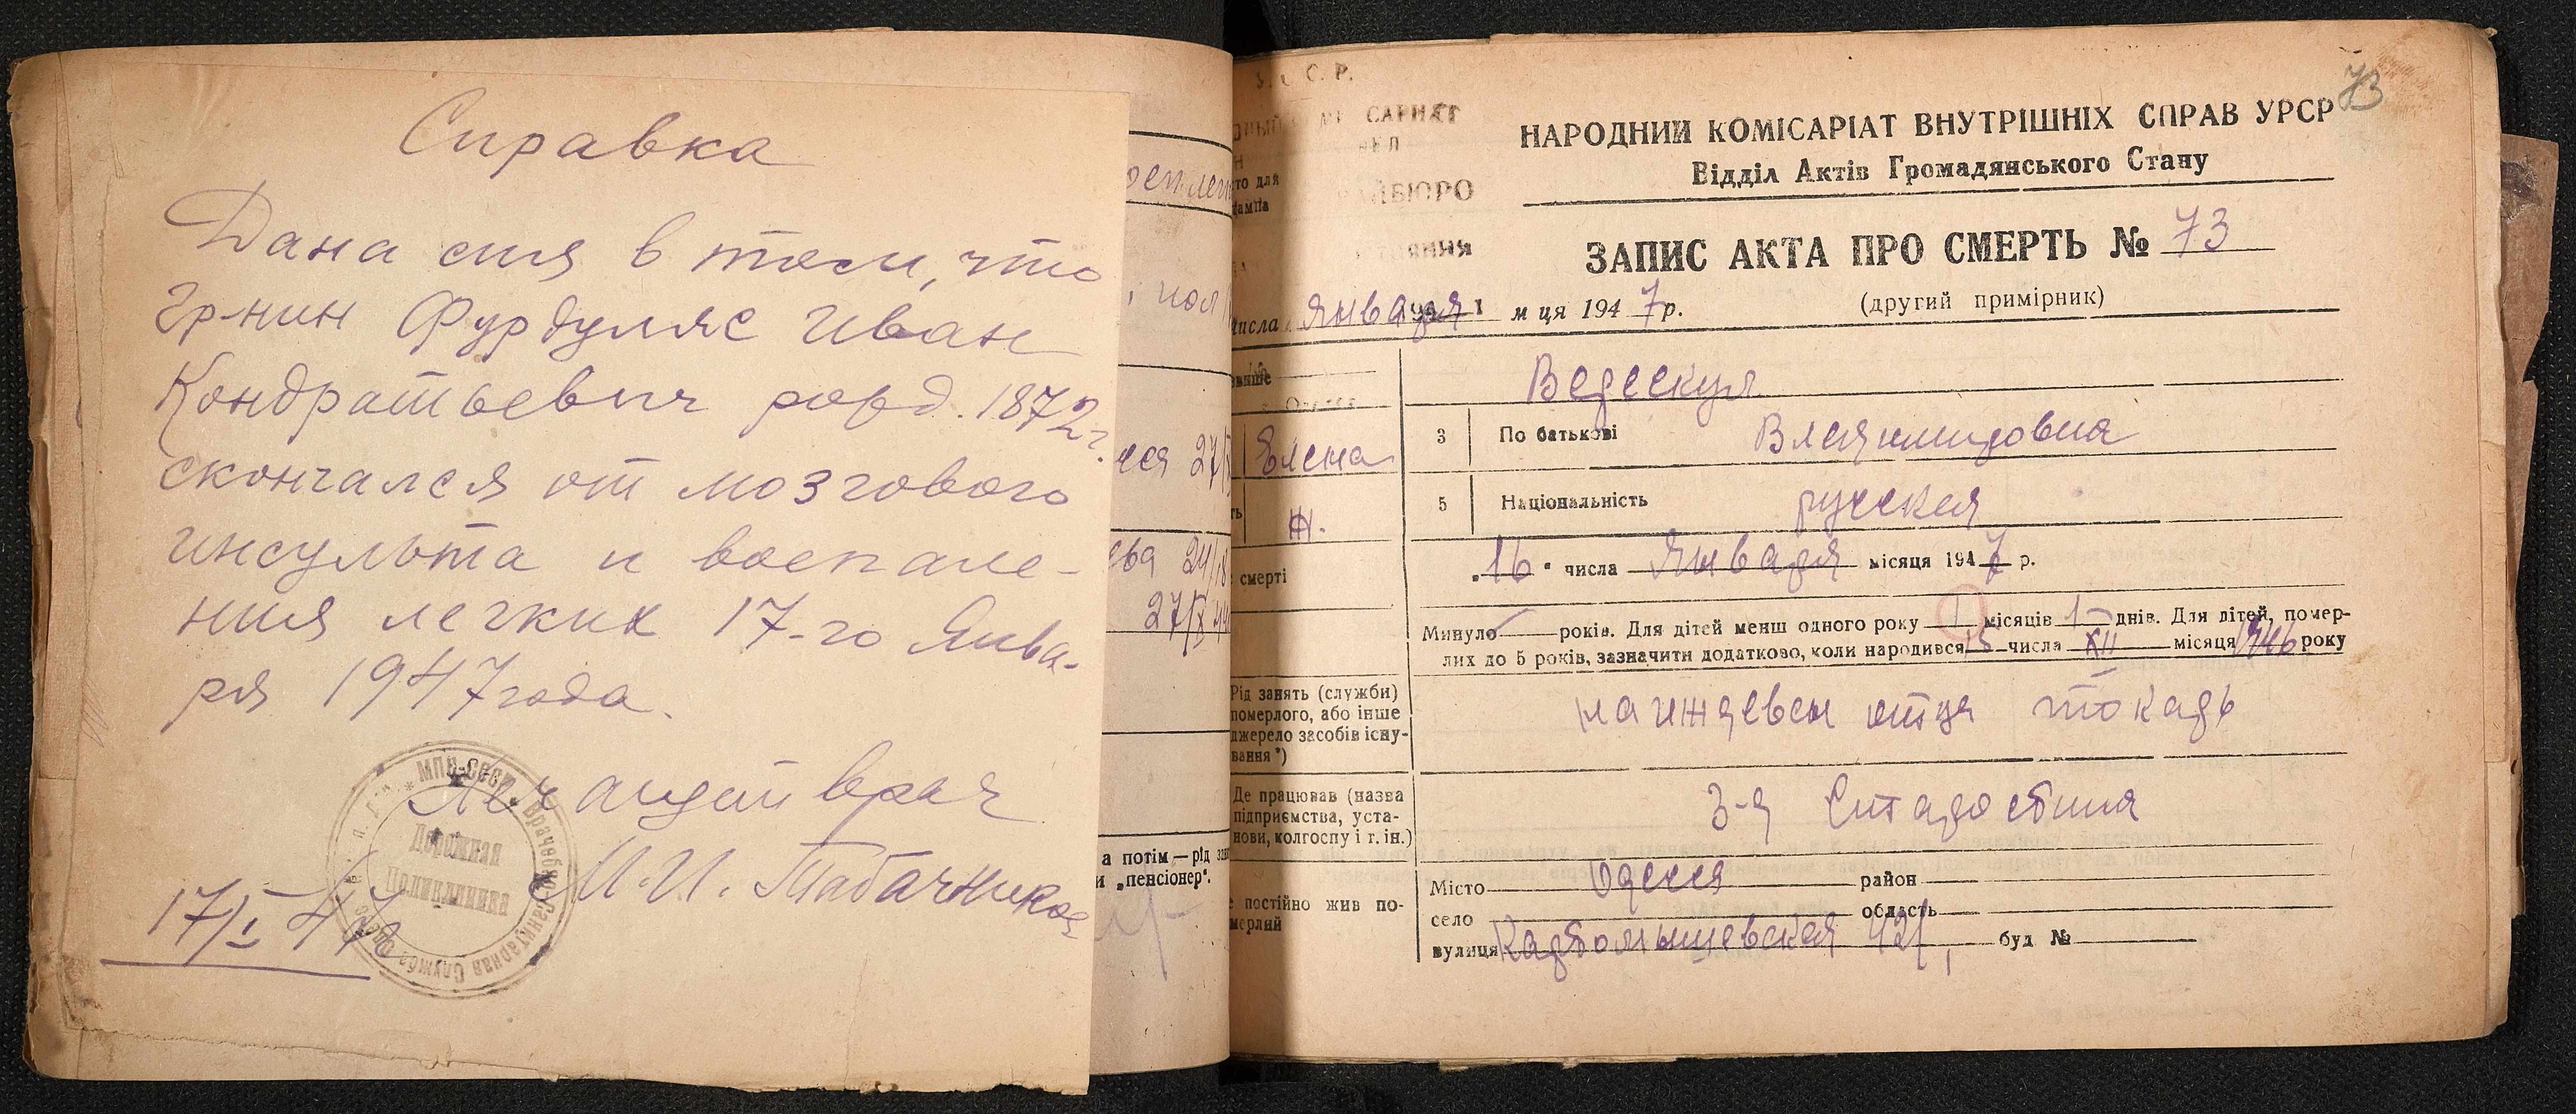 Справка
Дана сия в том, что
гр-нин Фурдуляс Иван
Кондратьевич рожд. 1872 г.
скончался от мозгового
инсульта и воспале-
ния легких 17-го Янва-
ря 1947 года.
Лечащий врач
М.И. Табачникова
17/I 47
МПС-СССР * Врачебно-Санитарная Служба
Дорожная
Поликлиника
27/
24/
27/
а потім — рід
и „пенсіонер“.
С. Р.
САРИАТ
РАЙБЮРО
73
НАРОДНИЙ КОМІСАРІАТ ВНУТРІШНІХ СПРАВ УРСР
Відділ Актів Громадянського Стану
ЗАПИС АКТА ПРО СМЕРТЬ № 73
(другий примірник)
числа января м ця 1947 р.
Елена
3 По батькові Владимировна
ж.
5 Національність русская
смерті
„16“ числа Января місяця 1947 р.
Минуло років. Для дітей менш одного року 1 місяців 1 днів. Для дітей, помер-
лих до 5 років, зазначити додатково, коли народився 15 числа XII місяця 1946 року
Рід занять (служби)
померлого, або інше
джерело засобів існу-
вання*)
на иждевен отца токарь
Де працював (назва
підприємства, уста-
нови, колгоспу і т. ін.)
3-я
постійно жив по-
мерлий
Місто Одесса район
село область
вулиця 42/ буд №